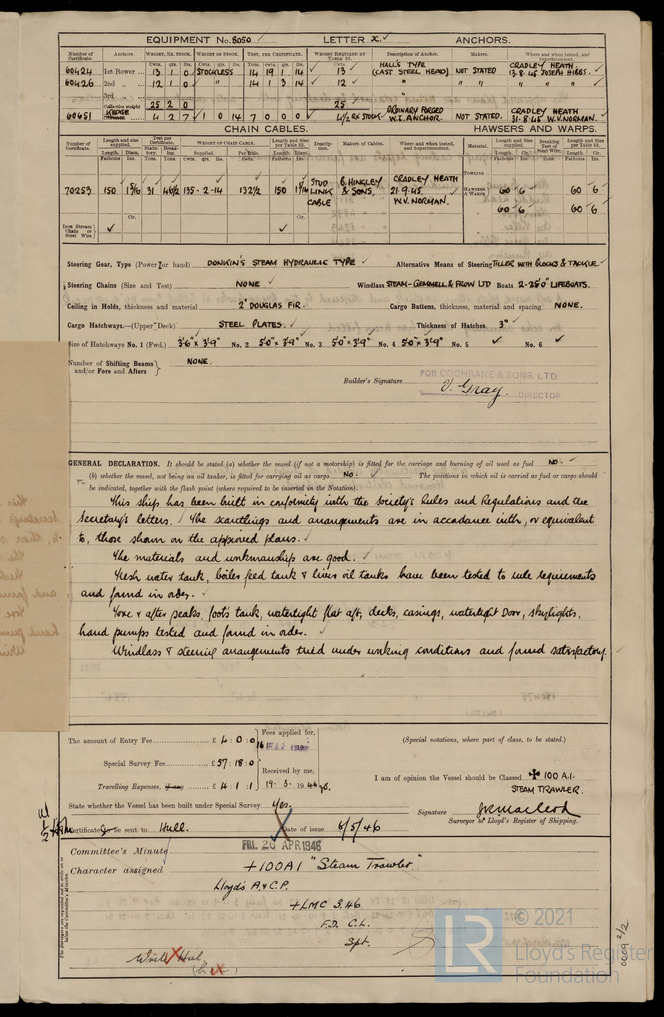 EQUIPMENT No. 8050 LETTER X. ANCHORS.
Number of Certificate. Anchors. WEIGHT, EX. STOCK. WEIGHT OF STOCK. TEST, PER CERTIFICATE. WEIGHT REQUIRED BY TABLE 53. Description of Anchor. Makers. Where and when tested, and Superintendent.
60424 1st Bower 13 1 0 STOCKLESS 14 19 1 14 13 HALL'S TYPE (CAST STEEL HEAD) NOT STATED CRADLEY HEATH 13.8.45 JOSEPH HIBBS.
60426 2nd " 12 1 0 " 14 1 3 14 12 " " " "
3rd "
Collective weight 25 2 0 25
60651 KEDGE 4 2 7 1 0 14 7 0 0 0 4½ EX STOCK ORDINARY FORGED W.I. ANCHOR. NOT STATED. CRADLEY HEATH 31.8.45 W.V. NORMAN.
CHAIN CABLES. HAWSERS AND WARPS.
Number of Certificate. Length and size supplied. Test per Certificate. WEIGHT OF CHAIN CABLE. Length and Size per Table 53. Description. Makers of Cables. Where and when tested, and Superintendent. Material. Length and size supplied. Breaking Test of Steel Wire. Length and Size per Table 53.
70253 150 1 3/16 31 46½ 135-2-14 132½ 150 1 3/16 STUD LINK CABLE B. HINGLEY & SONS. CRADLEY HEATH 21.9.45 W.V. NORMAN. HAWSERS & WARPS 60 6 60 6
60 6 60 6
Iron Stream Chain or Steel Wire
Steering Gear, Type (Power or hand) DONKIN'S STEAM HYDRAULIC TYPE Alternative Means of Steering TILLER WITH BLOCKS & TACKLE.
Steering Chains (Size and Test) NONE Windlass STEAM-GEMMELL & FROW LTD Boats 2-25'0" LIFEBOATS.
Ceiling in Holds, thickness and material 2" DOUGLAS FIR. Cargo Battens, thickness, material and spacing NONE.
Cargo Hatchways.—(Upper Deck) STEEL PLATES. Thickness of Hatches 3"
Size of Hatchways No. 1 (Fwd.) 3'6" x 3'9" No. 2 5'0" x 3'9" No. 3 5'0" x 3'9" No. 4 5'0" x 3'9" No. 5 No. 6
Number of Shifting Beams and/or Fore and Afters NONE.
FOR COCHRANE & SONS, LTD
Builder's Signature V. Gray. DIRECTOR
GENERAL DECLARATION. It should be stated (a) whether the vessel (if not a motorship) is fitted for the carriage and burning of oil used as fuel No.
(b) whether the vessel, not being an oil tanker, is fitted for carrying oil as cargo No. The positions in which oil is carried as fuel or cargo should
be indicated, together with the flash point (where required to be inserted in the Notation).
This ship has been built in conformity with the Society's Rules and Regulations and the
Secretary's letters. The scantlings and arrangements are in accordance with, or equivalent
to, those shown on the approved plans.
The materials and workmanship are good.
Fresh water tank, boiler feed tank & liver oil tanks have been tested to rule requirements
and found in order.
Fore & after peaks, foots tank, watertight flat aft, decks, casings, watertight Door, skylights,
hand pumps tested and found in order.
Windlass & steering arrangements tried under working conditions and found satisfactory.
The amount of Entry Fee £ 4 : 0 : 0 Fees applied for,
Special Survey Fee £ 57 : 18 : 0 Received by me,
Travelling Expenses, if any £ 4 : 1 : 1 19.3.1946
(Special notations, where part of class, to be stated.)
I am of opinion the Vessel should be Classed +100 A.1.
STEAM TRAWLER.
State whether the Vessel has been built under Special Survey Yes.
Signature J.R. Macleod
Surveyor to Lloyd's Register of Shipping.
Certificate to be sent to Hull. Date of issue 6/5/46
Committee's Minute FRI. 26 APR 1946
Character assigned +100A1 "Steam Trawler"
Lloyd's A&C.P.
+LMC 3.46
F.D. C.L.
Spt.
LR
© 2021
Lloyd's Register
Foundation
0009 2/2